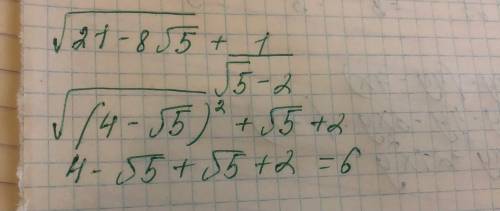 √(21 - 8√5) + 1/(√5 - 2)
√((4 - √5)²) + √5 + 2
4 - √5 + √5 + 2 = 6